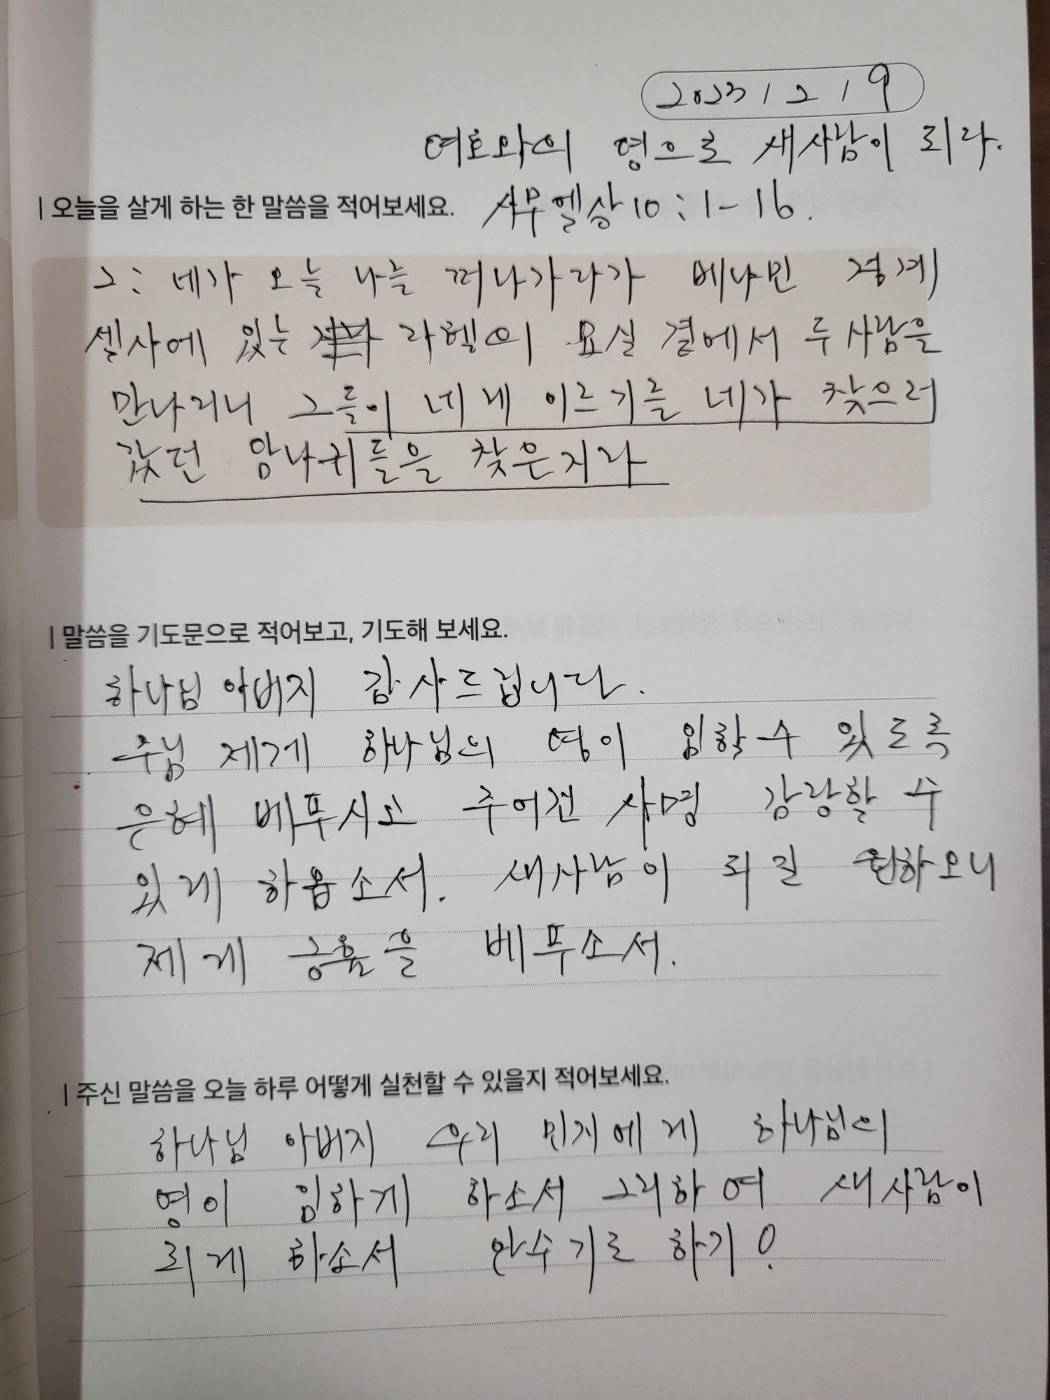 2023/2/9
여호와의 영으로 새사람이 되라.
| 오늘을 살게 하는 한 말씀을 적어보세요. 사무엘상 10:1-16.
2: 네가 오늘 나를 떠나가다가 베냐민 경계
셀사에 있는 라헬의 묘실 곁에서 두 사람을
만나리니 그들이 네게 이르기를 네가 찾으러
갔던 암나귀들을 찾은지라
| 말씀을 기도문으로 적어보고, 기도해 보세요.
하나님 아버지 감사드립니다.
주님 제게 하나님의 영이 임할 수 있도록
은혜 베푸시고 주어진 사명 감당할 수
있게 하옵소서. 새사람이 되길 원하오니
제게 긍휼을 베푸소서.
| 주신 말씀을 오늘 하루 어떻게 실천할 수 있을지 적어보세요.
하나님 아버지 우리 민지에게 하나님의
영이 임하게 하소서 그리하여 새사람이
되게 하소서 안수기도 하기!